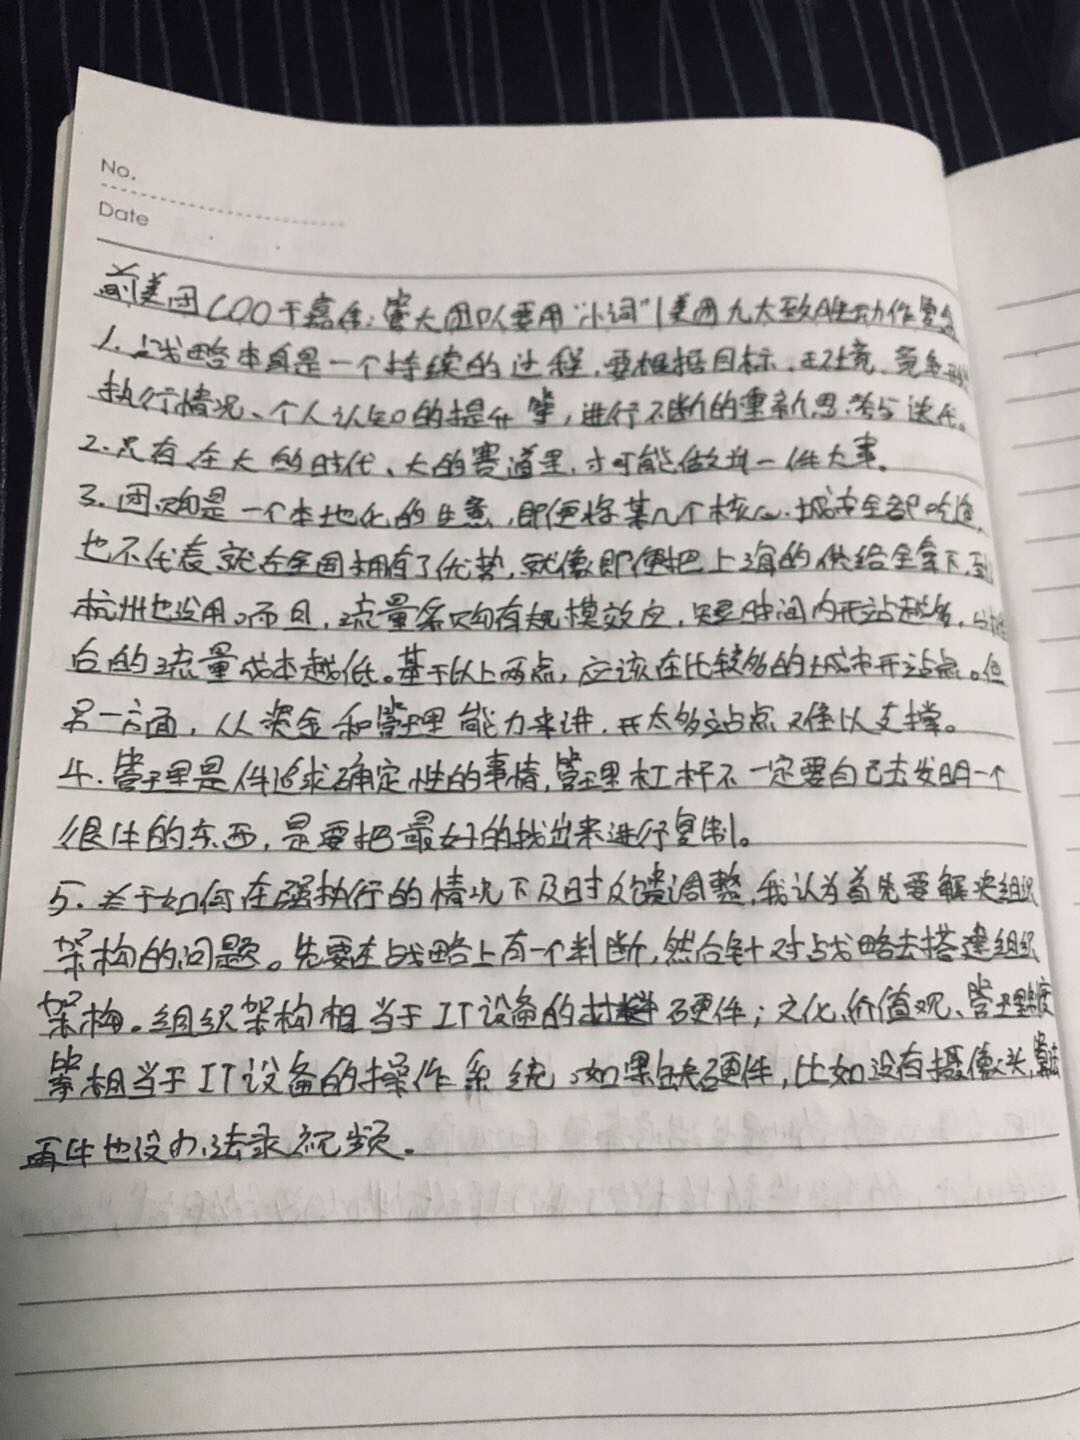 No.
Date
前美团COO干嘉伟:管大团队要用“小词”|美团九大致胜动作复盘
1.战略本身是一个持续的过程,要根据目标、环境、竞争
执行情况、个人认知的提升等,进行不断的重新思考与迭代。
2.只有在大的时代、大的赛道里,才可能做成一件大事。
3.团购是一个本地化的生意,即便将某几个核心城市全部吃透,
也不代表就在全国拥有了优势,就像即便把上海的供给全拿下,到
杭州也没用。而且,流量采购有规模效应,短时间内开站越多,
台的流量成本越低。基于以上两点,应该在比较多的城市开站点。但
另一方面,从资金和管理能力来讲,开太多站点又难以支撑。
4.管理是件追求确定性的事情,管理杠杆不一定要自己去发明一个
很牛的东西,是要把最好的找出来进行复制。
5.关于如何在强执行的情况下及时反馈调整,我认为首先要解决组织
架构的问题。先要在战略上有一个判断,然后针对战略去搭建组织
架构。组织架构相当于IT设备的硬件;文化、价值观、管理制度
等相当于IT设备的操作系统。如果缺硬件,比如没有摄像头,算法
再牛也没办法录视频。